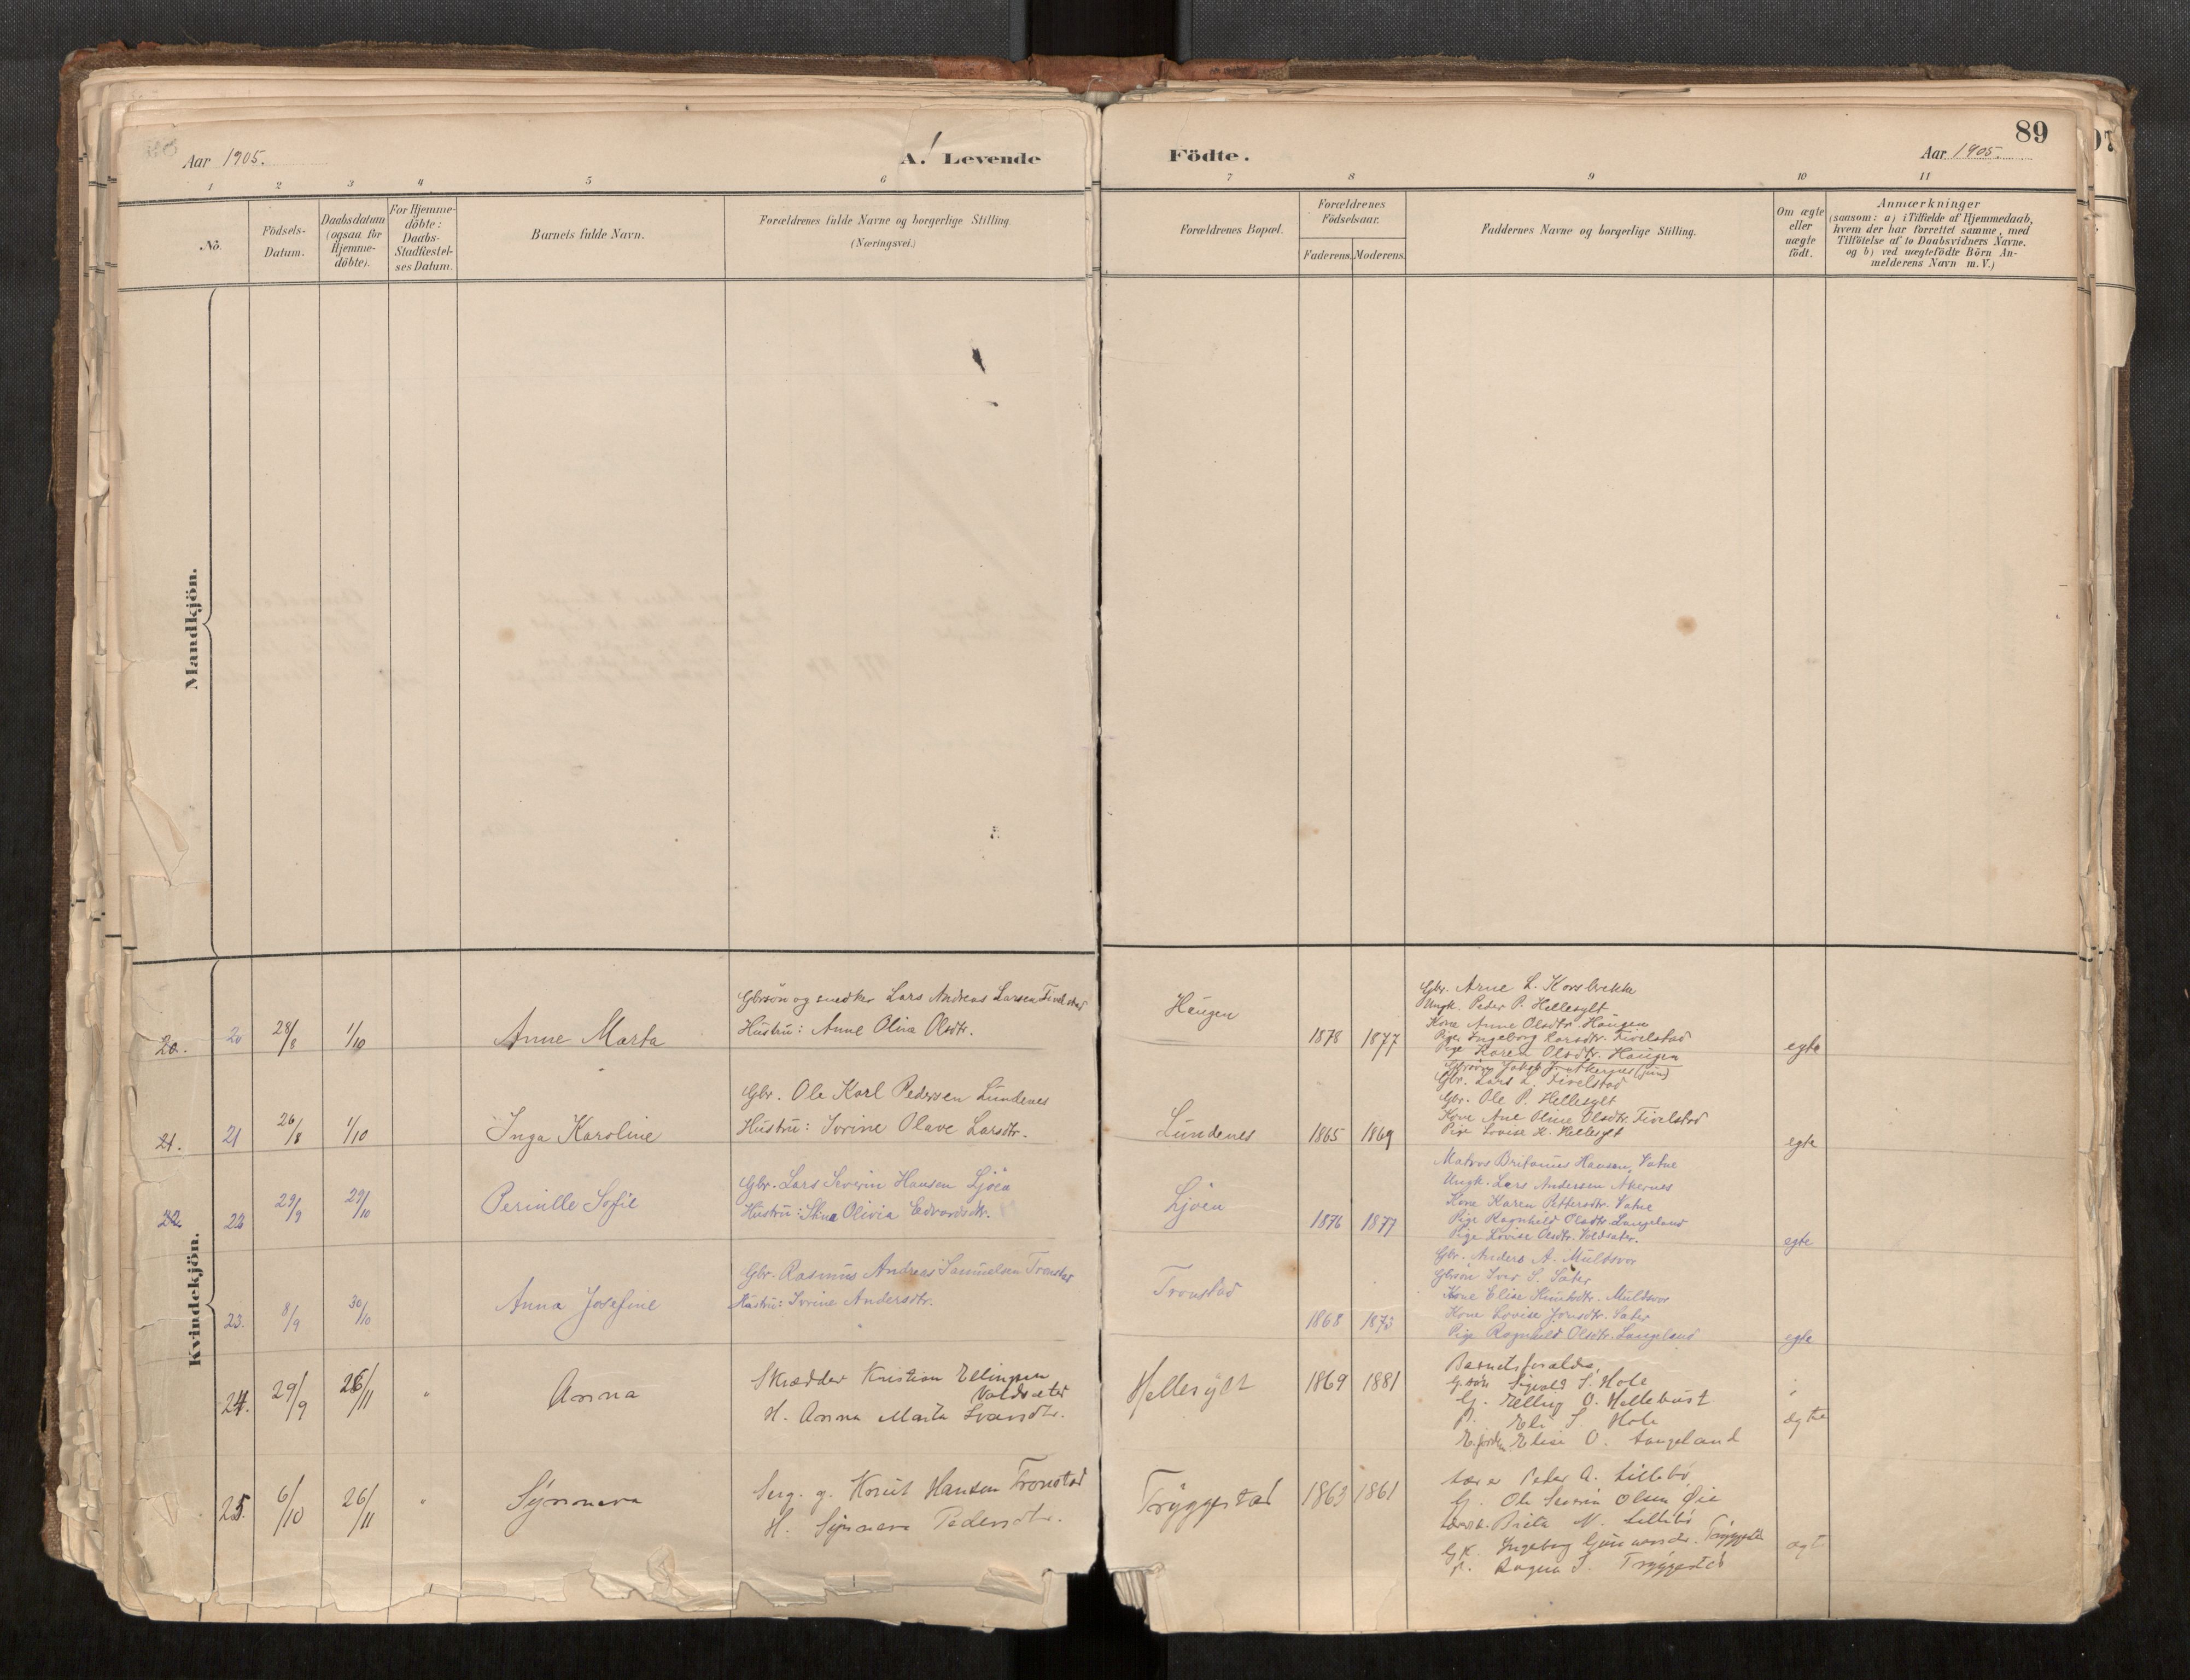 89
Aar 1905.
A. Levende
Födte.
Aar 1905.
1 2 3 4 5 6 7 8 9 10 11
No.
Födsels-
Datum.
Daabsdatum
(ogsaa for
Hjemme-
döbte).
For Hjemme-
döbte:
Daabs-
Stadfestel-
ses Datum.
Barnets fulde Navn.
Forældrenes fulde Navne og borgerlige Stilling.
(Næringsvei.)
Forældrenes Bopæl.
Forældrenes
Födselsaar.
Faderens. Moderens.
Faddernes Navne og borgerlige Stilling.
Om ægte
eller
uægte
födt.
Anmærkninger
(saasom: a) i Tilfælde af Hjemmedaab,
hvem der har forrettet samme, med
Tilföielse af to Daabsvidners Navne.
og b) ved uægtefödte Börn An-
melderens Navn m.V.)
Mandkjön.
Kvindekjön.
20. 20 28/8 1/10 Anne Marta
Gbrsön og snedker Lars Andreas Larsen Fivelstad
Hustru: Anne Oline Olsdtr.
Haugen 1878 1877
Gbr. Arne L. Korsbrekke
Ungk. Peder P. Hellesylt
Kone Anne Olsdtr. Haugen
Pige Ingeborg Larsdtr. Fivelstad
Pige Karen Olsdtr. Haugen
egte
21. 21 26/8 1/10 Inga Karoline
Gbr. Ole Karl Pedersen Lundenes
Hustru: Ivrine Olave Larsdtr.
Lundenes 1865 1869
Gbr. Lars L. Fivelstad
Gbr. Ole P. Hellesylt
Kone Ane Oline Olsdtr. Fivelstad
Pige Lovise H. Hellesylt
egte
22. 22 29/9 29/10 Pernille Sofie
Gbr. Lars Severin Hansen Ljöen
Hustru: Olivia Edvardsdtr.
Ljöen 1876 1877
Matros Britanus Hansen, Vatne
Ungk. Lars Andersen Akernes
Kone Karen Pettersdtr. Vatne
Pige Ragnhild Olsdtr. Langeland
Pige Lovise Olsdtr. Voldsæter.
egte
23. 8/9 30/10 Anna Josefine
Gbr. Rasmus Andreas Samuelsen Tronstad
Hustru: Ivrine Andersdtr.
Tronstad 1868 1873
Gbr. Anders A. Muldsvor
Gbrsön Ivar S. Sæter
Kone Elise Knutsdtr. Muldsvor
Kone Lovise Jörnsdtr. Sæter
Pige Ragnhild Olsdtr. Langeland
egte
24. 29/9 26/11 " Anna
Skrædder Kristian Ellingsen
Voldsæter
H. Anna Marta Ivarsdtr.
Hellesylt 1869 1881
Barnets forældre,
G.sön Sigvald S. Hole
G. Elling O. Hellebust
P. Eli S. Hole
Elise O. Langeland
ægte
25. 6/10 26/11 " Synneva
Serg. g. Knut Hansen Tronstad
H. Synneva Pedersdtr.
Tryggestad 1863 1861
Lærer Peder A. Lillebö
G. Ole Severin Olsen Øie
Brita N. Lillebö
G.K. Ingeborg Gunnarsdr. Tryggestad
P. Ragna I. Tryggestad
ægt